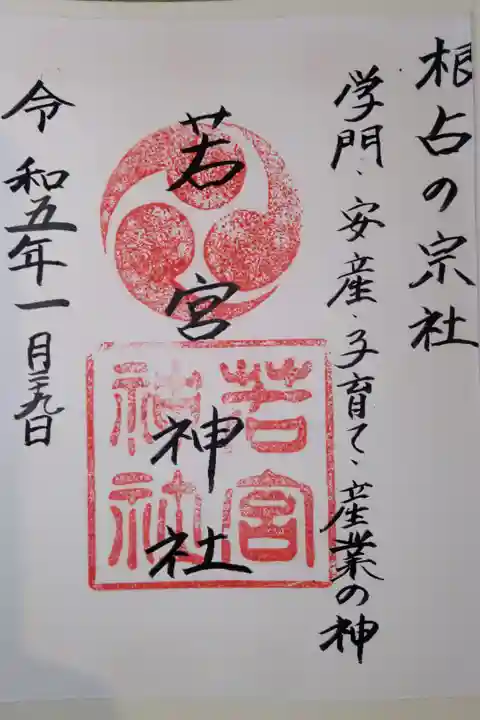 根占の宗社
学門、安産、子育て、産業の神
若宮神社
若宮神社
令和五年一月二九日